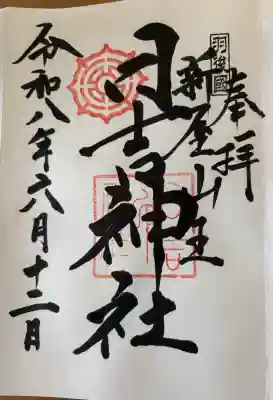 奉拝
羽後國
新屋山王
日吉神社
令和八年六月十二日